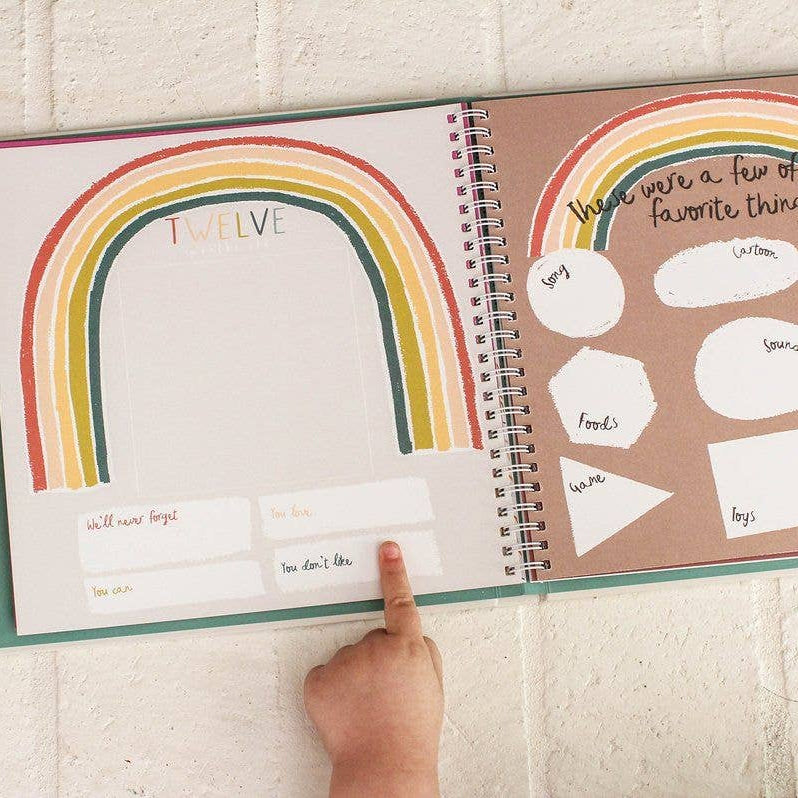 TWELVE
We'll never forget
You love
You can
You don't like
These were a few of
favorite thin
Song
Cartoon
Foods
Soun
Game
Toys